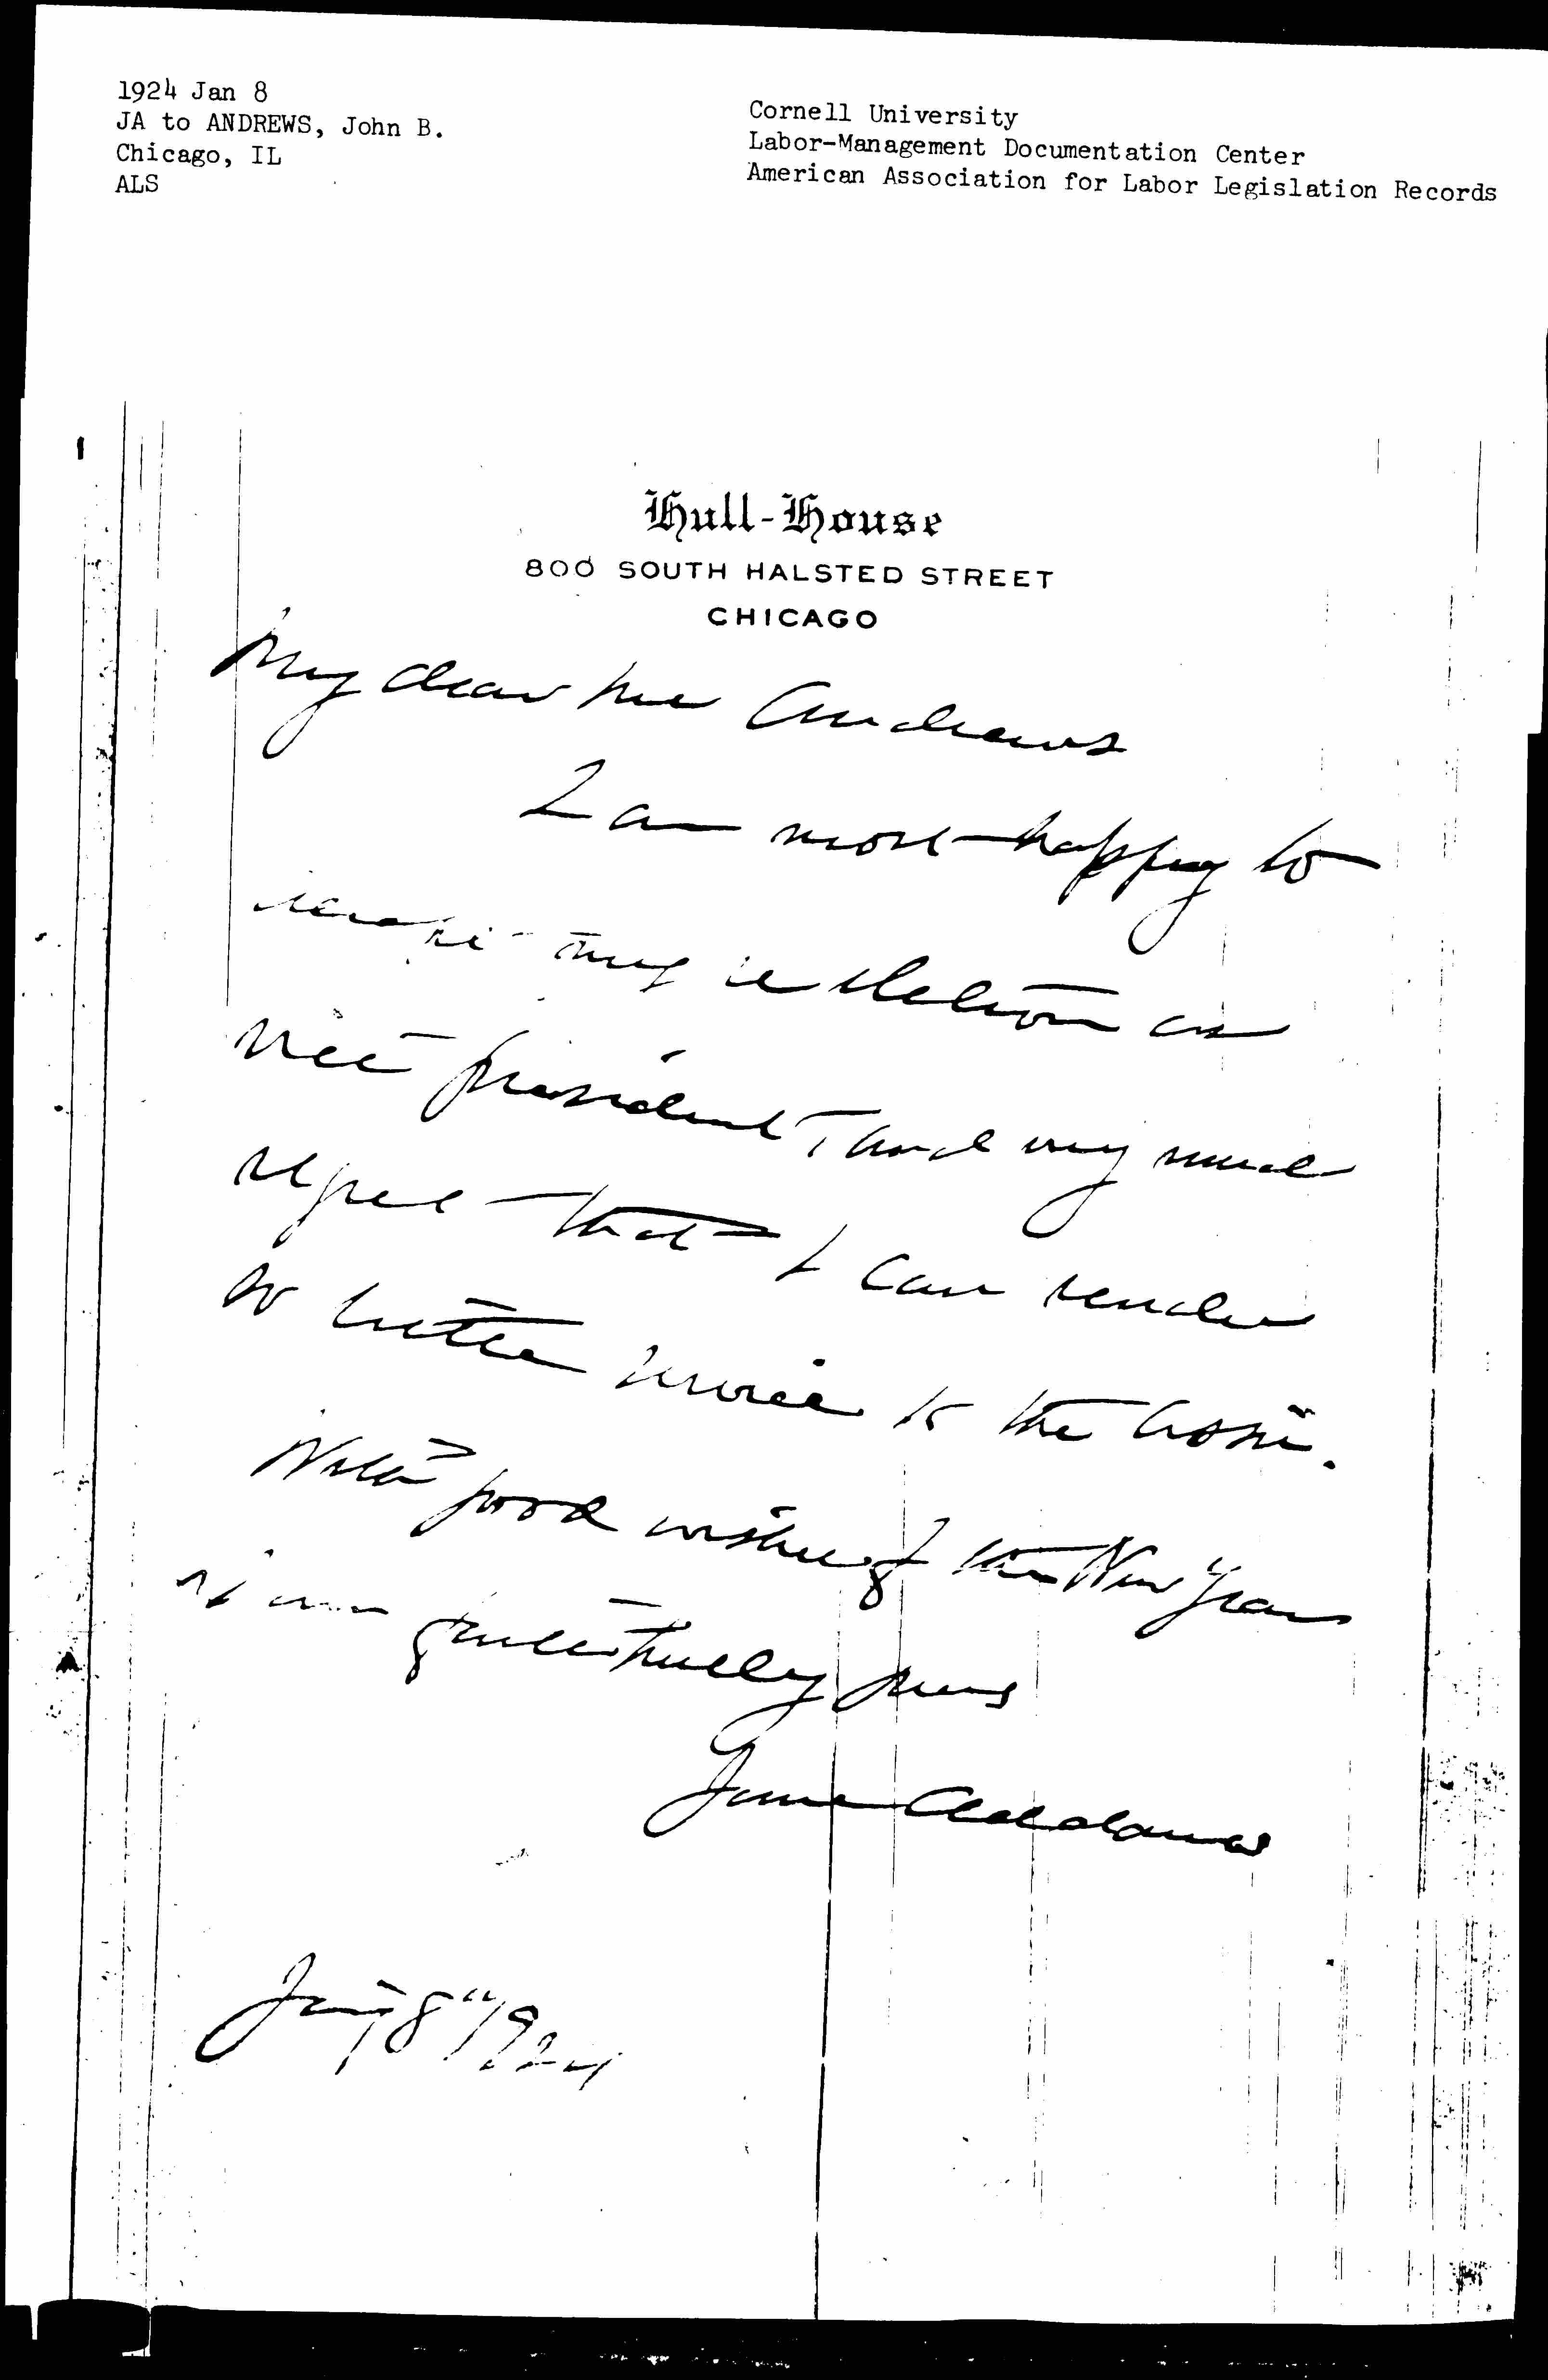 1924 Jan 8
JA to ANDREWS, John B.
Chicago, IL
ALS
Cornell University
Labor-Management Documentation Center
American Association for Labor Legislation Records
Hull-House
800 SOUTH HALSTED STREET
CHICAGO
My dear Mr Andrews
I am most happy to
my re election as
Vice president, and very much
regret that I can render
so little service to the Assn.
With good wishes of the New Year
faithfully yours
Jane Addams
Jany 8" 1924